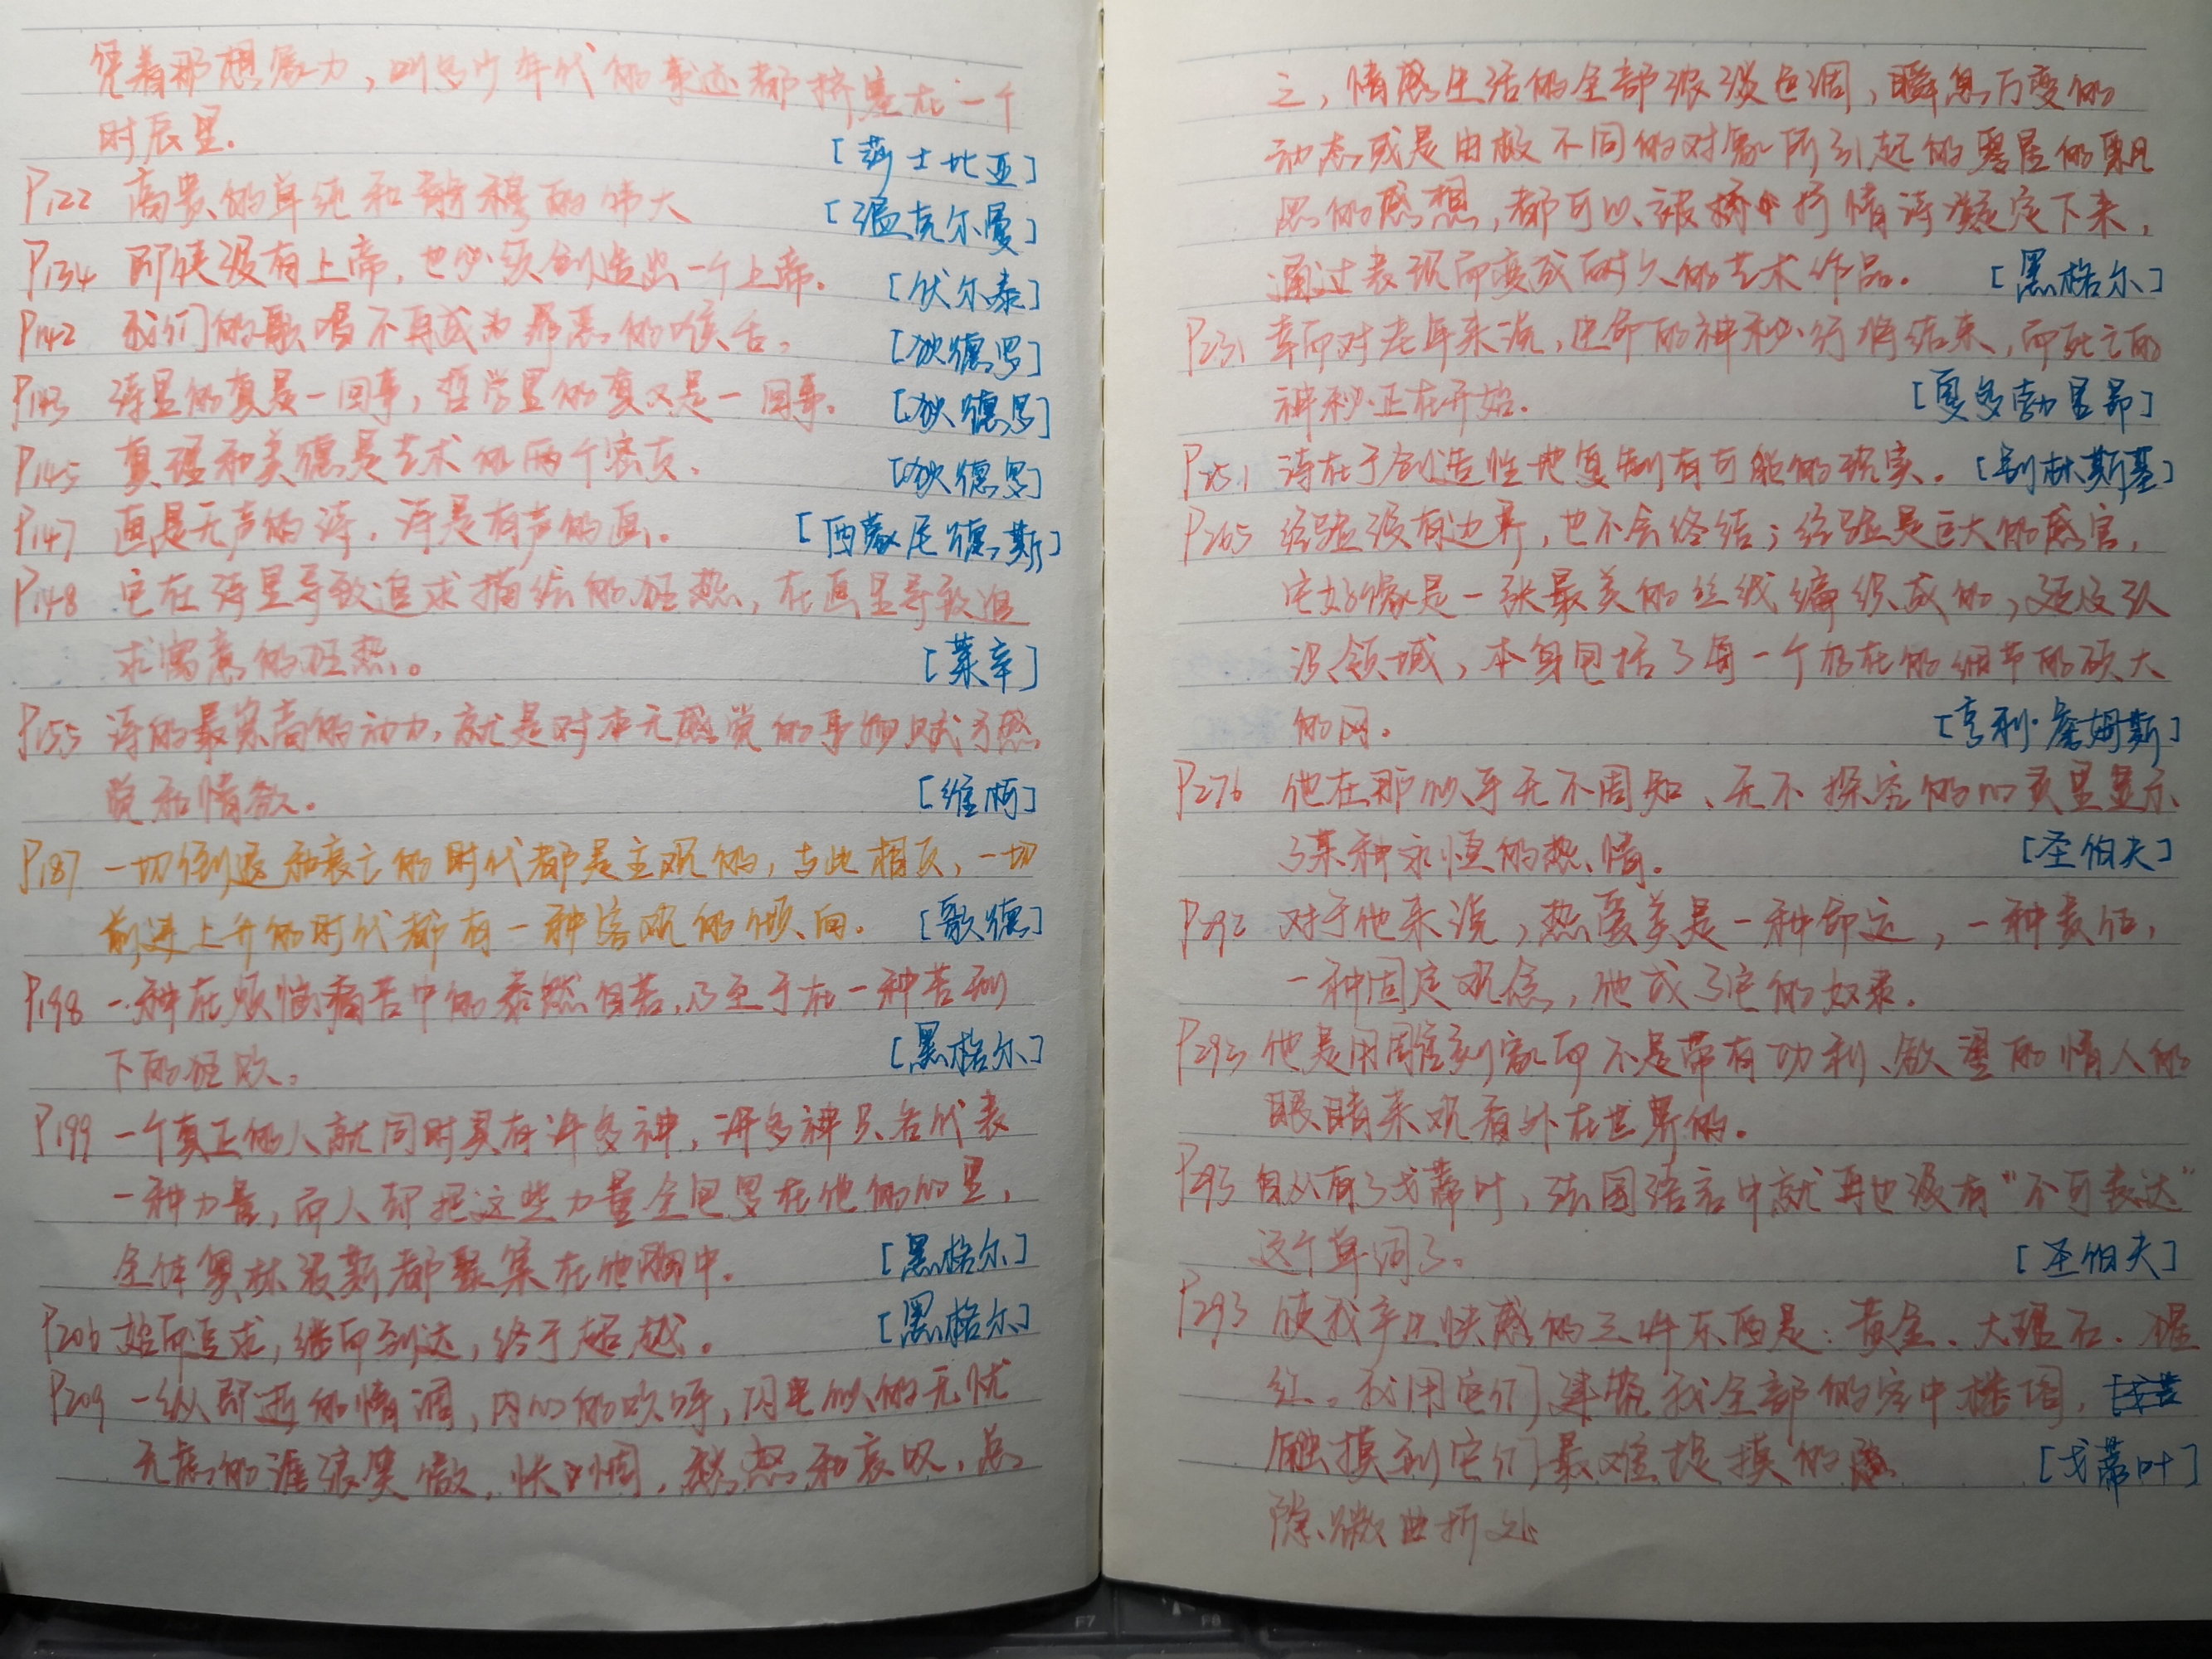 凭着那想象力,叫多少年代的事迹都挤塞在一个
时辰里。
[莎士比亚]
P122 高贵的单纯和静穆的伟大
[温克尔曼]
P134 即使没有上帝,也必须创造出一个上帝。
[伏尔泰]
P142 我们的歌唱不再成为邪恶的喉舌。
[狄德罗]
P143 诗里的真是一回事,哲学里的真又是一回事。
[狄德罗]
P145 真理和美德是艺术的两个密友。
[狄德罗]
P147 画是无声的诗,诗是有声的画。
[西蒙尼德斯]
P148 它在诗里导致追求描绘的狂热,在画里导致追
求寓意的狂热。
[莱辛]
P155 诗的最崇高的动力,就是对本无感觉的事物赋予感
觉和情欲。
[维柯]
P187 一切倒退和衰亡的时代都是主观的,与此相反,一切
前进上升的时代都有一种客观的倾向。
[歌德]
P198 一种在烦恼痛苦中的泰然自若,乃至于在一种苦刑
下的狂欢。
[黑格尔]
P199 一个真正的人就同时具有许多神,许多神只各代表
一种力量,而人却把这些力量全包罗在他的心里,
全体奥林波斯都聚集在他胸中。
[黑格尔]
P206 始而追求,继而到达,终于超越。
[黑格尔]
P209 一纵即逝的情调,内心的欢呼,闪电似的无忧
无虑的谑浪笑傲,怅惘,愁怨和哀叹,总
之,情感生活的全部浓淡色调,瞬息万变的
动态或是由极不同的对象所引起的零星的飘忽
的感想,都可以被抒情诗凝定下来,
通过表现而变成耐久的艺术作品。
[黑格尔]
P231 幸而对老年来说,生命的神秘行将结束,而死亡的
神秘正在开始。
[夏多勃里昂]
P251 诗在于创造性地复制有可能的现实。
[别林斯基]
P265 经验没有边界,也不会终结;经验是巨大的感官,
它好像是一张最美的丝线编织成的,延及认
识领域,本身包括了每一个存在的细节的硕大
的网。
[亨利·詹姆斯]
P276 他在那似乎无不周知、无不探究的心灵里显示
了某种永恒的热情。
[圣伯夫]
P292 对于他来说,热爱美是一种命运,一种责任,
一种固定观念,他成了它的奴隶。
P293 他是用雕刻家而不是带有功利、欲望的情人的
眼睛来观看外在世界的。
P293 自从有了戈蒂叶,法国语言中就再也没有“不可表达”
这个单词了。
[圣伯夫]
P293 使我产生快感的三件东西是:黄金、大理石、猩
红。我用它们建筑我全部的空中楼阁,
触摸到它们最难捉摸的
[戈蒂叶]
隐微曲折处